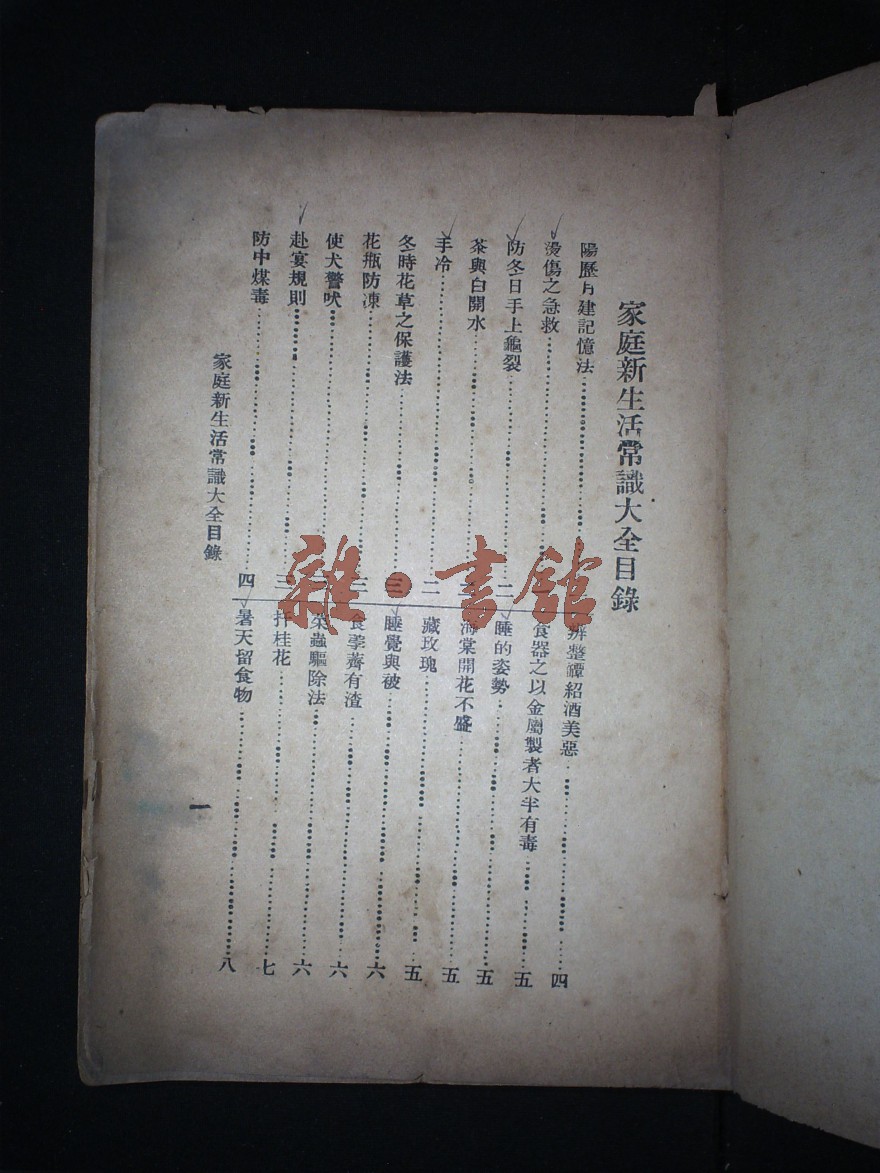 家庭新生活常識大全目錄
陽歷月建記憶法
燙傷之急救
防冬日手上龜裂
茶與白開水
手冷 二
冬時花草之保護法 三
花瓶防凍
使犬警吠
赴宴規則 三
防中煤毒 四
辨整罈紹酒美惡 四
食器之以金屬製者大半有毒 五
睡的姿勢 五
海棠開花不盛 五
藏玫瑰 五
睡覺與被 六
食荸薺有渣 六
菜蟲驅除法 六
扦桂花 七
暑天留食物 八
家庭新生活常識大全目錄
一
雜·書館